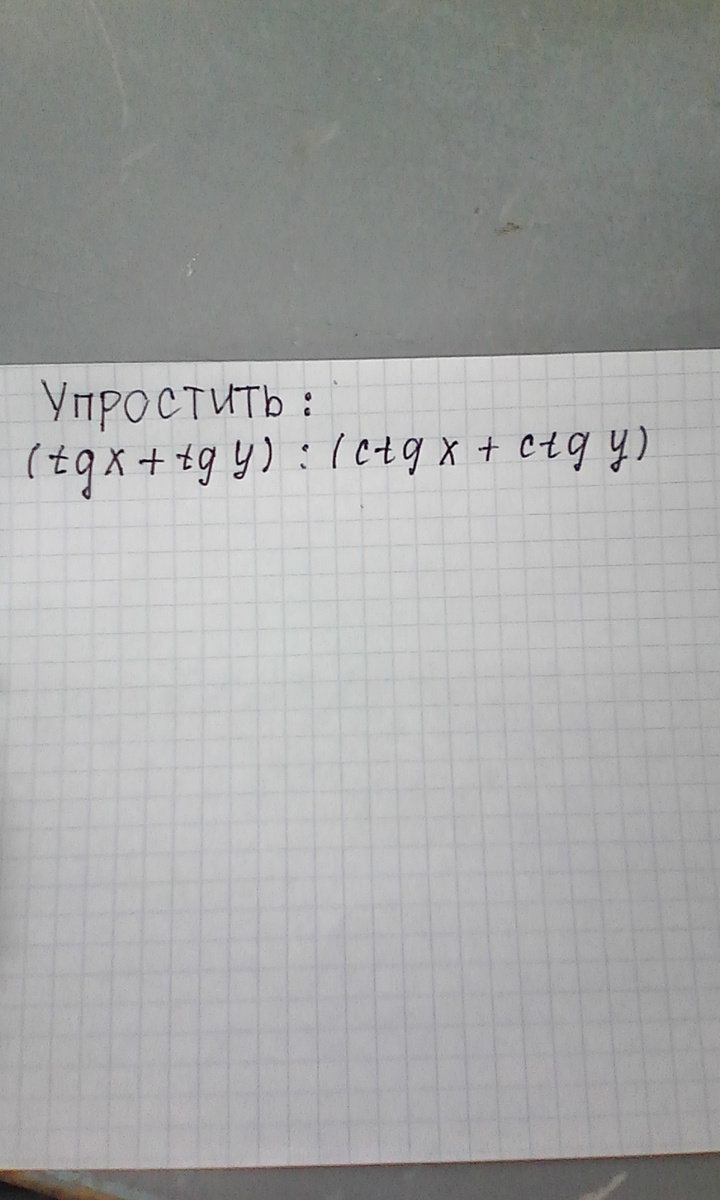 Упростить:
(tg x + tg y) : (ctg x + ctg y)